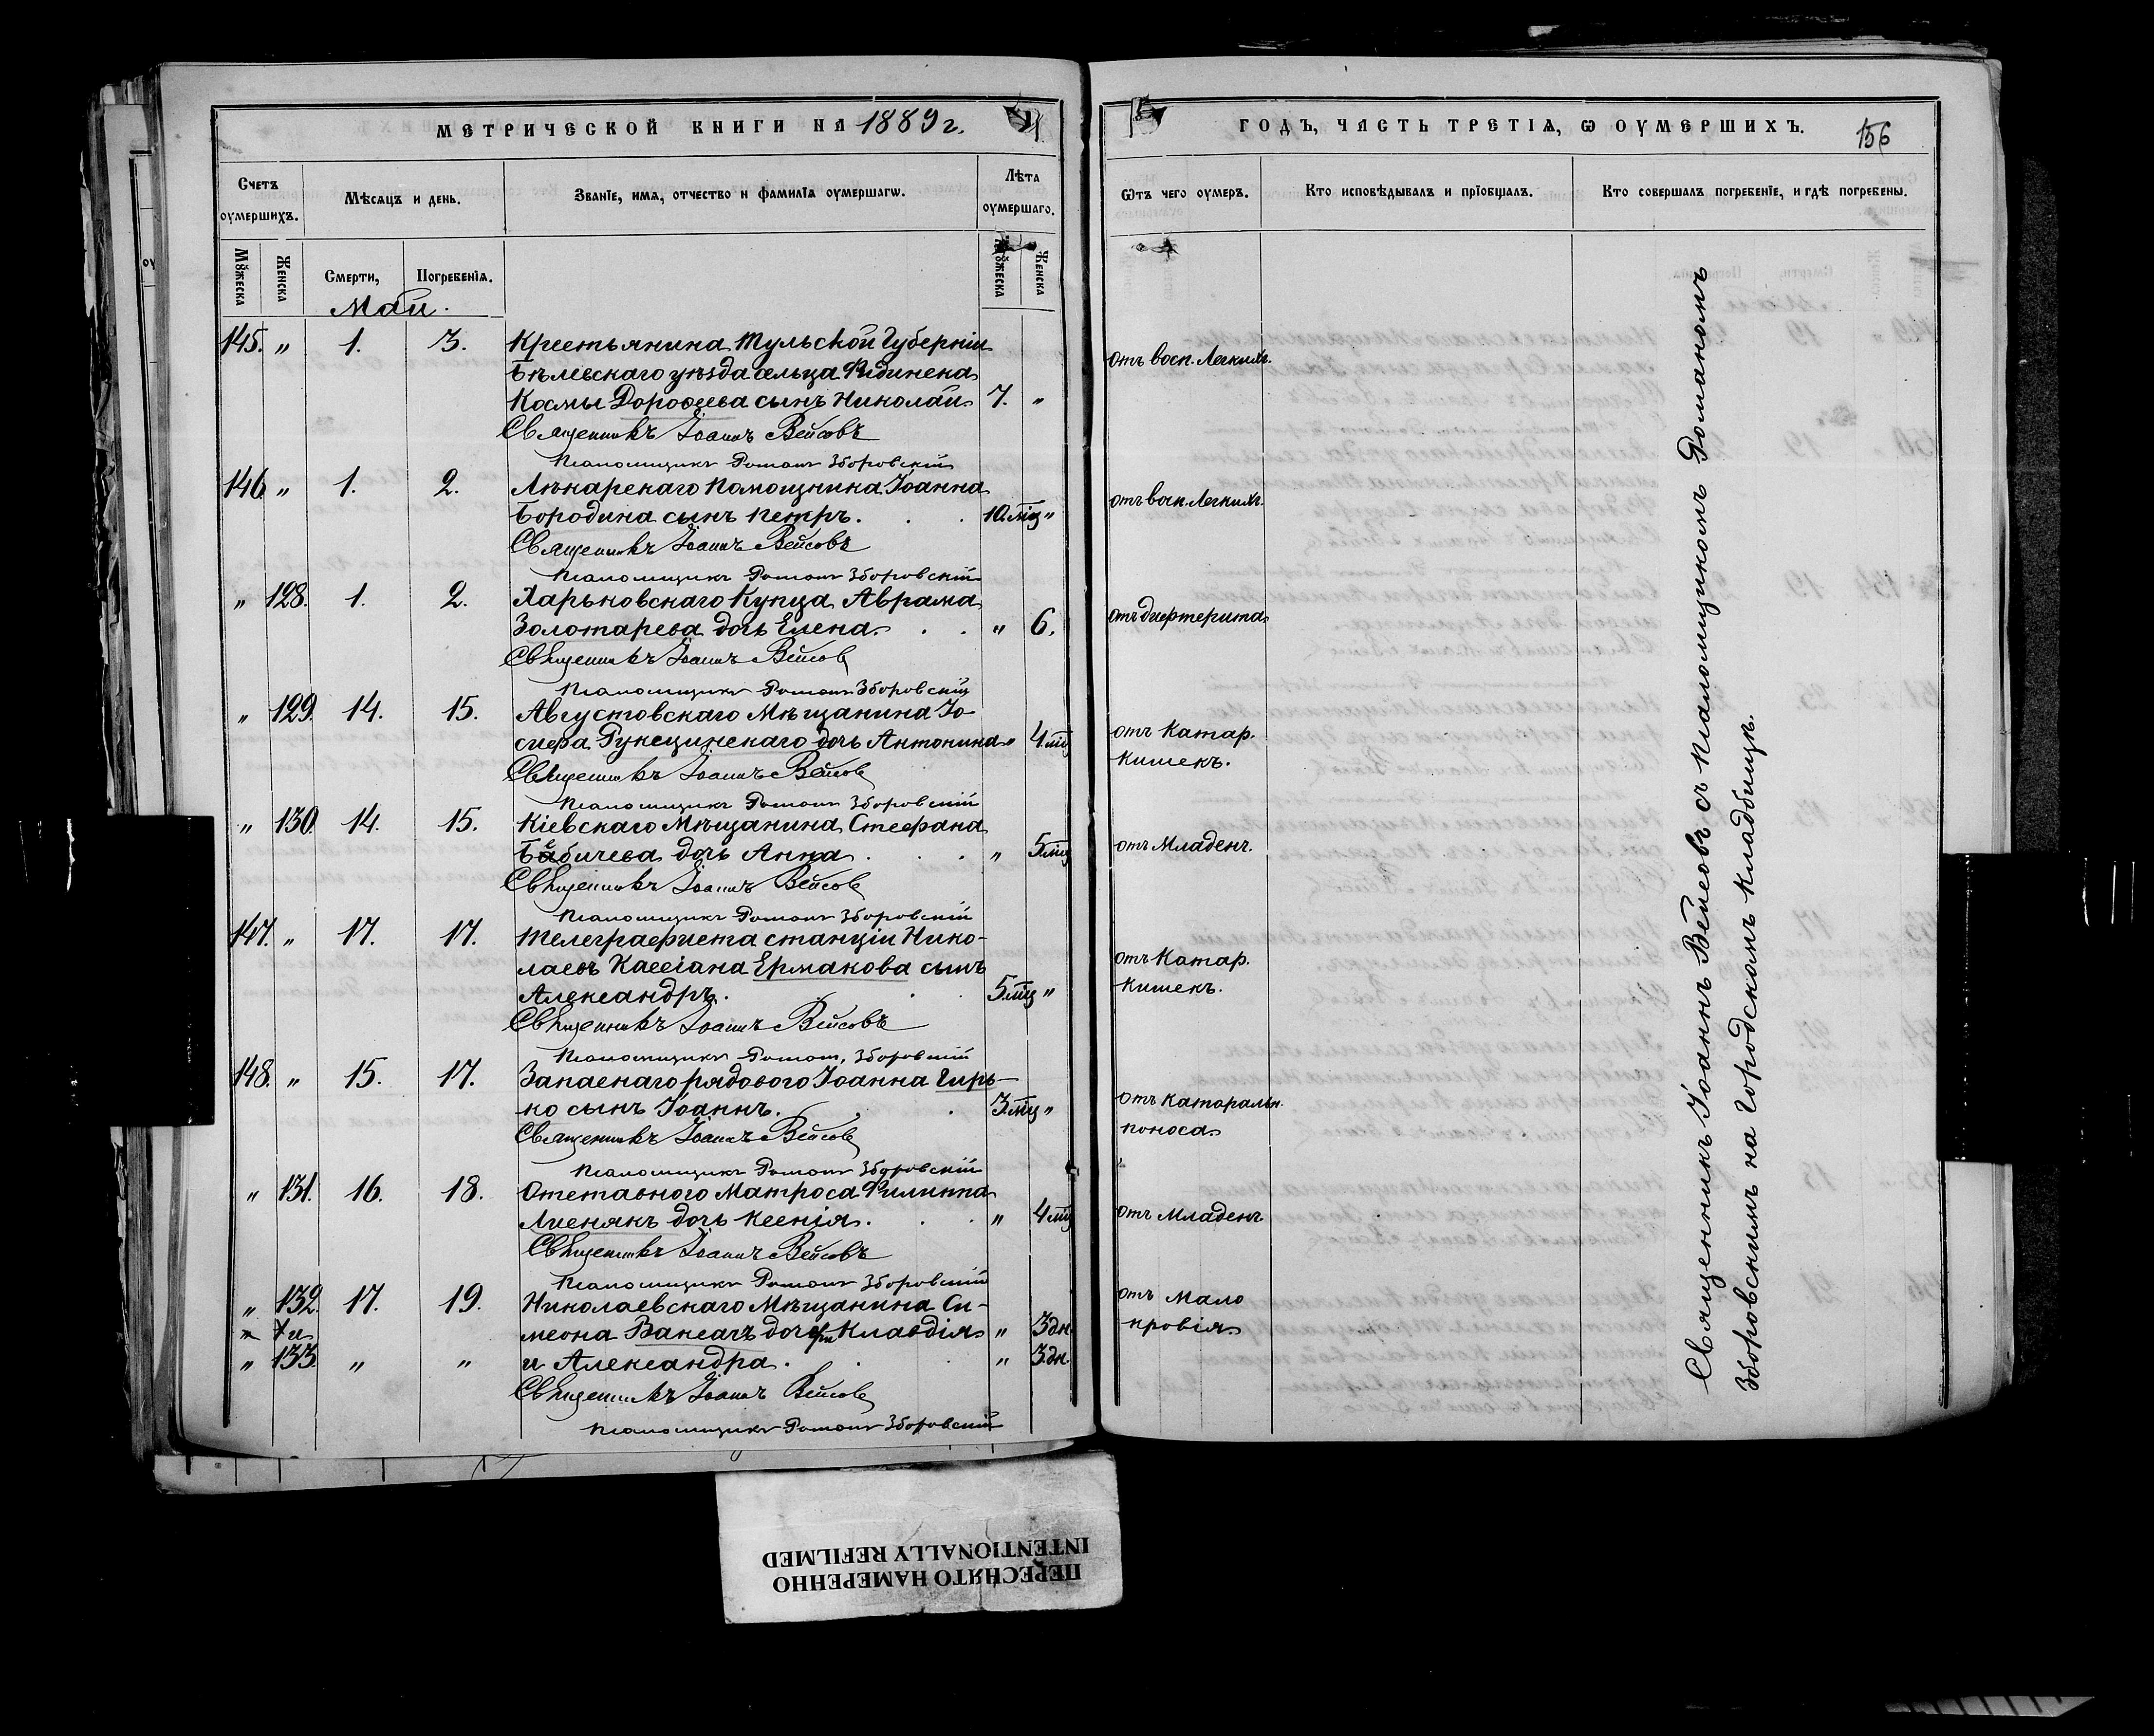 МЕТРИЧЕСКОЙ КНИГИ НА 1889 г.
Счетъ оумершихъ.
Мѣсяцъ и день.
Званїе, имя, отчество и фамилїя оумершагѡ.
Лѣта оумершаго.
Мȣжеска
Женска
Смерти,
Погребенїя.
Мȣжеска
Женска
Май.
145. " 1. 3. Крестьянина Тульской Губерніи
Бѣлевскаго уѣзда сельца
Космы Дороѳеева сынъ Николай 7. "
Священникъ Іоаннъ Вейсовъ
Псаломщикъ Романъ Зборовскій
146 " 1. 2. Лѣкарскаго Помощника Іоанна
Бородина сынъ Петръ. 10. мц "
Священникъ Іоаннъ Вейсовъ
Псаломщикъ Романъ Зборовскій
" 128. 1. 2. Харьковскаго Купца Аврама
Золотарева дочь Елена. " 6.
Священникъ Іоаннъ Вейсовъ
Псаломщикъ Романъ Зборовскій
" 129. 14. 15. Августовскаго Мѣщанина Іо-
сифа дочь Антонина " 4 мц
Священникъ Іоаннъ Вейсовъ
Псаломщикъ Романъ Зборовскій
" 130. 14. 15. Кіевскаго Мѣщанина Стефана
Бабичева дочь Анна. " 5 мц
Священникъ Іоаннъ Вейсовъ
Псаломщикъ Романъ Зборовскій
147. " 17. 17. Телеграфиста станціи Нико-
лаевъ Кассіана Ермакова сынъ
Александръ. 5. мц "
Священникъ Іоаннъ Вейсовъ
Псаломщикъ Романъ Зборовскій
148. " 15. 17. Запаснаго рядового Іоанна Гирь-
ко сынъ Іоаннъ. 3. мц "
Священникъ Іоаннъ Вейсовъ
Псаломщикъ Романъ Зборовскій
" 131. 16. 18. Отставного Матроса Филиппа
Лиснякъ дочь Ксенія. " 4 мц
Священникъ Іоаннъ Вейсовъ
Псаломщикъ Романъ Зборовскій
" 132. 17. 19. Николаевскаго Мѣщанина Си-
и меона Вансачъ дочери Клавдія " 3 дн.
" 133. " " и Александра. " 3 дн.
Священникъ Іоаннъ Вейсовъ
Псаломщикъ Романъ Зборовскій
ГОДЪ, ЧАСТЬ ТРЕТІЯ, Ѡ ОУМЕРШИХЪ.
156
Ѿтъ чего оумеръ.
Кто исповѣдывалъ и прїобщалъ.
Кто совершалъ погребенїе, и гдѣ погребены.
отъ восп. Легкихъ.
отъ восп. Легкихъ.
отъ дифтерита
отъ Катар.
Кишекъ.
отъ Младенч.
отъ Катар.
Кишекъ.
отъ катаральн.
поноса
отъ Младенч
отъ Мало
кровія
Священникъ Іоаннъ Вейсовъ съ псаломщикомъ Романомъ
Зборовскимъ на Городскомъ Кладбищѣ.
ПЕРЕСНЯТО НАМЕРЕННО
INTENTIONALLY REFILMED